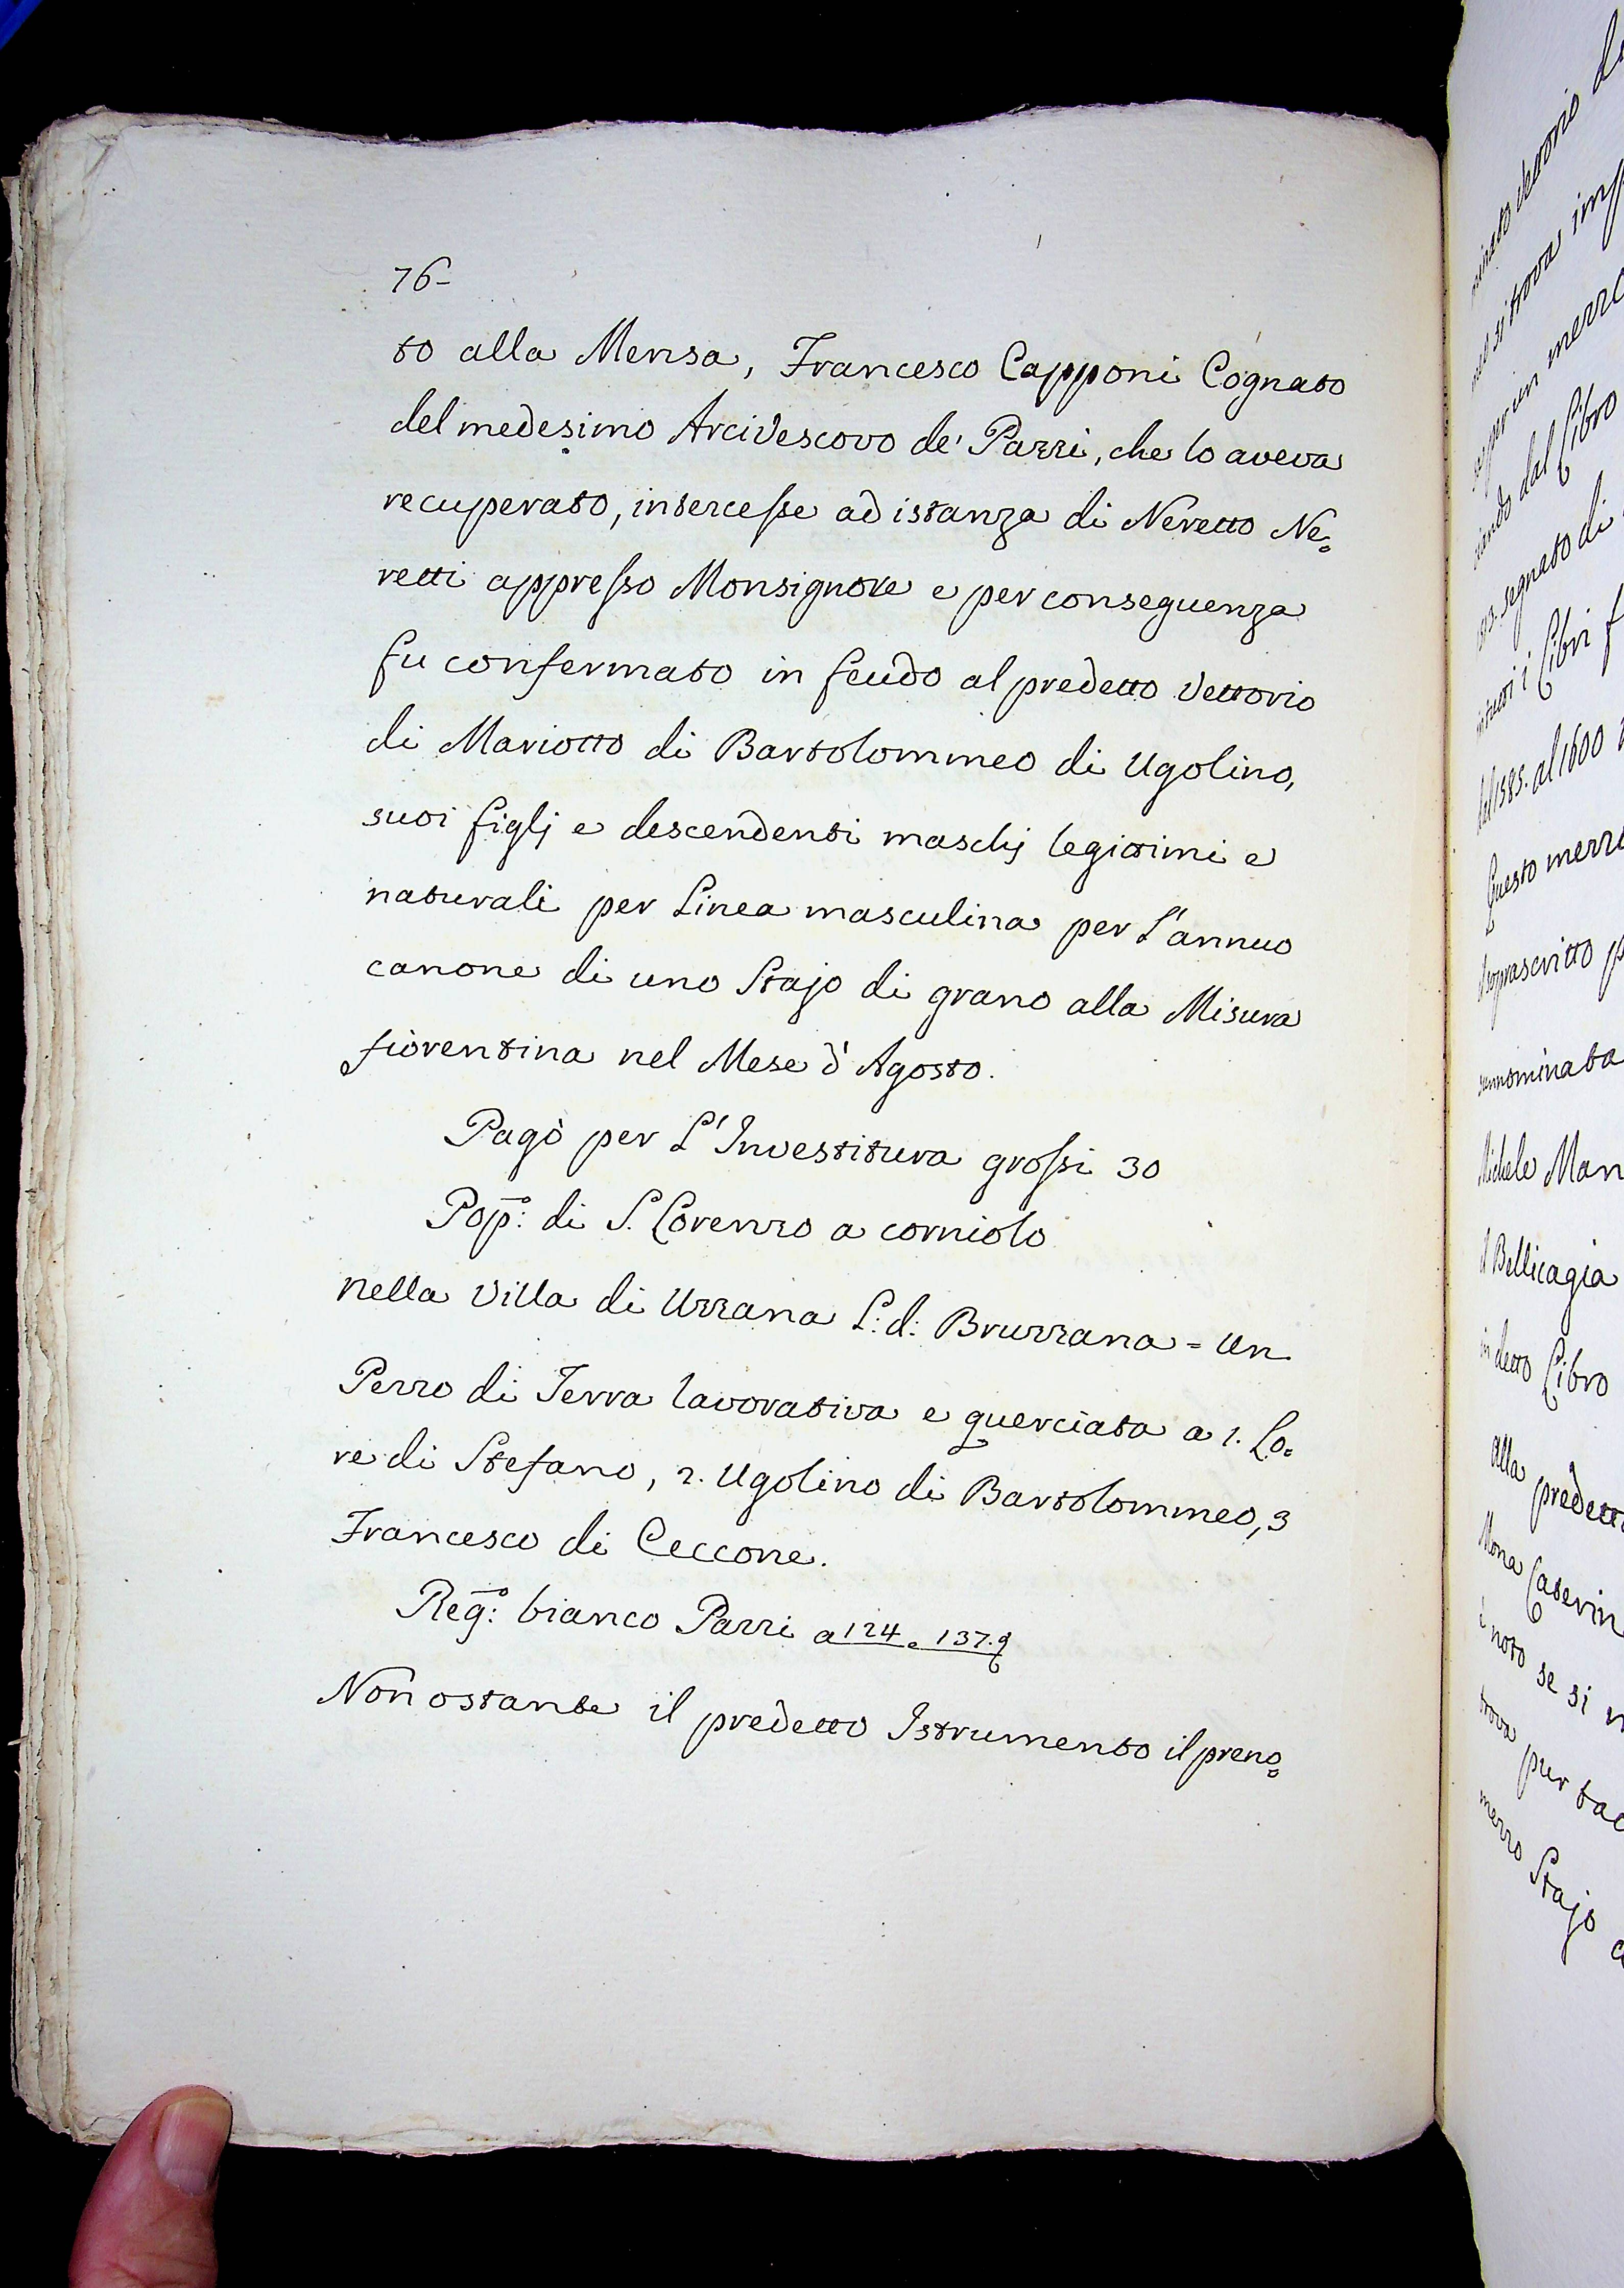 76-
to alla Mensa, Francesco Capponi Cognato
del medesimo Arcivescovo de' Pazzi, che lo aveva
recuperato, intercesse ad istanza di Neretto Ne=
retti appresso Monsignore e per conseguenza
fu confermato in feudo al predetto Vettorio
di Mariotto di Bartolommeo di Ugolino,
suoi figlj e descendenti maschj legittimi e
naturali per Linea masculina per L'annuo
canone di uno Stajo di grano alla Misura
fiorentina nel Mese d'Agosto.
Pagò per L'Investitura grossi 30
Pop:º di S. Lorenzo a corniolo
nella Villa di Uzzana L: d: Bruzzana = Un
Pezzo di Terra lavorativa e querciata a 1. Lo=
re di Stefano, 2. Ugolino di Bartolommeo, 3
Francesco di Ceccone.
Reg:º bianco Pazzi a 124 e 137.
Non ostante il predetto Istrumento il preno=
minato Vettorio
si trova
per un mezzo
dal Libro
segnato di
i Libri
1585. al 1600
Questo mezzo
soprascritto
nominata
Michele Man
Bellicagia
in detto Libro
alla predetta
Mona Caterin
è noto se si
trova per
mezzo Stajo